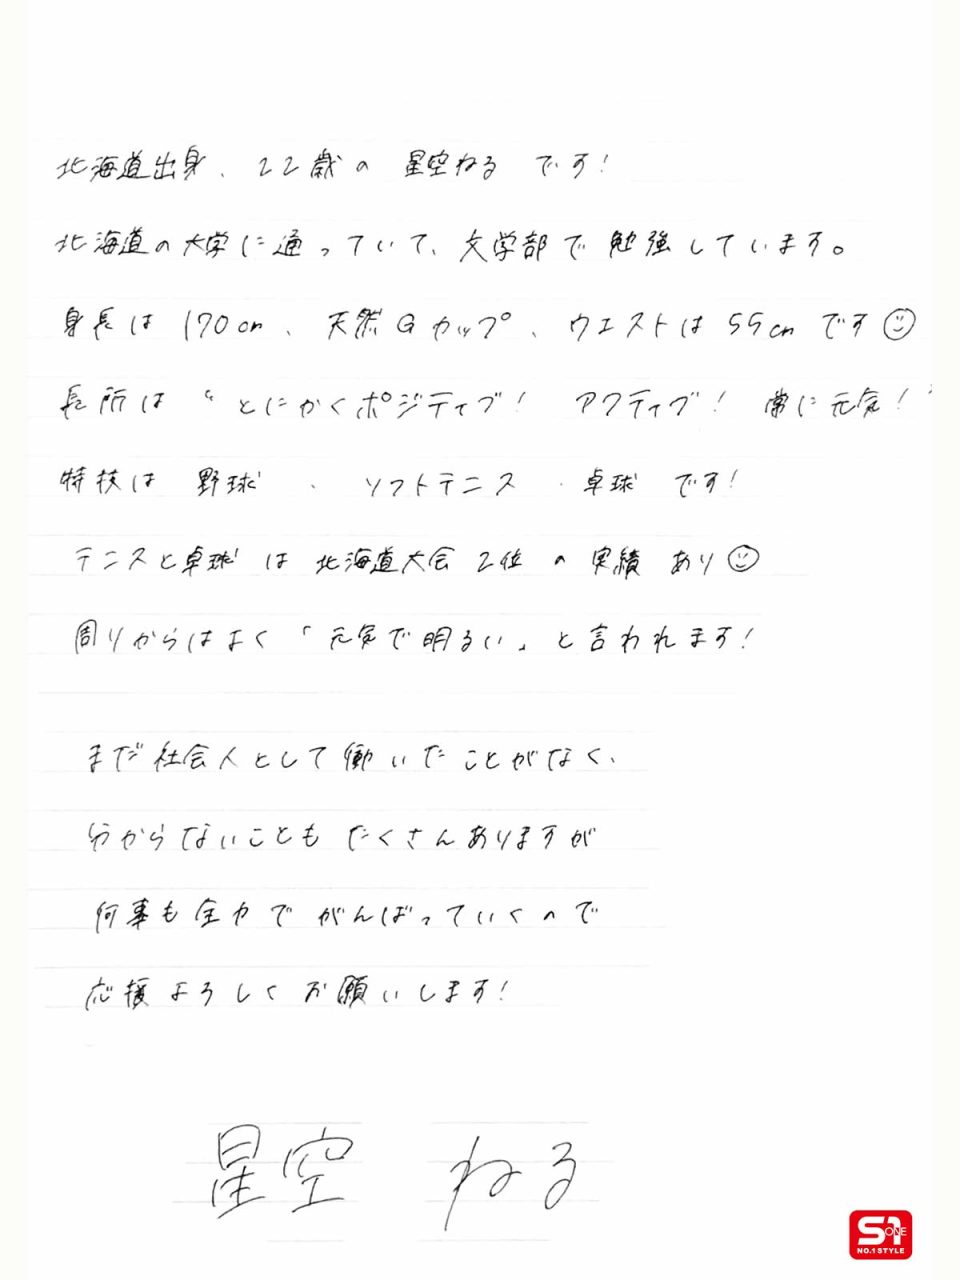 北海道出身、22歳の 星空ねる です!
北海道の大学に通っていて、文学部で勉強しています。
身長は 170cm、天然Gカップ、ウエストは 55cm です☺
長所は “とにかくポジティブ! アクティブ! 常に元気!”
特技は 野球 、 ソフトテニス 、卓球 です!
テニスと卓球 は 北海道大会 2位 の 実績 あり☺
周りからはよく 「元気で明るい」と言われます!
まだ社会人として働いたことがなく、
分からないことも たくさんありますが
何事も全力で がんばっていくので
応援よろしくお願いします!
星空 ねる
S1
ONE
NO.1 STYLE